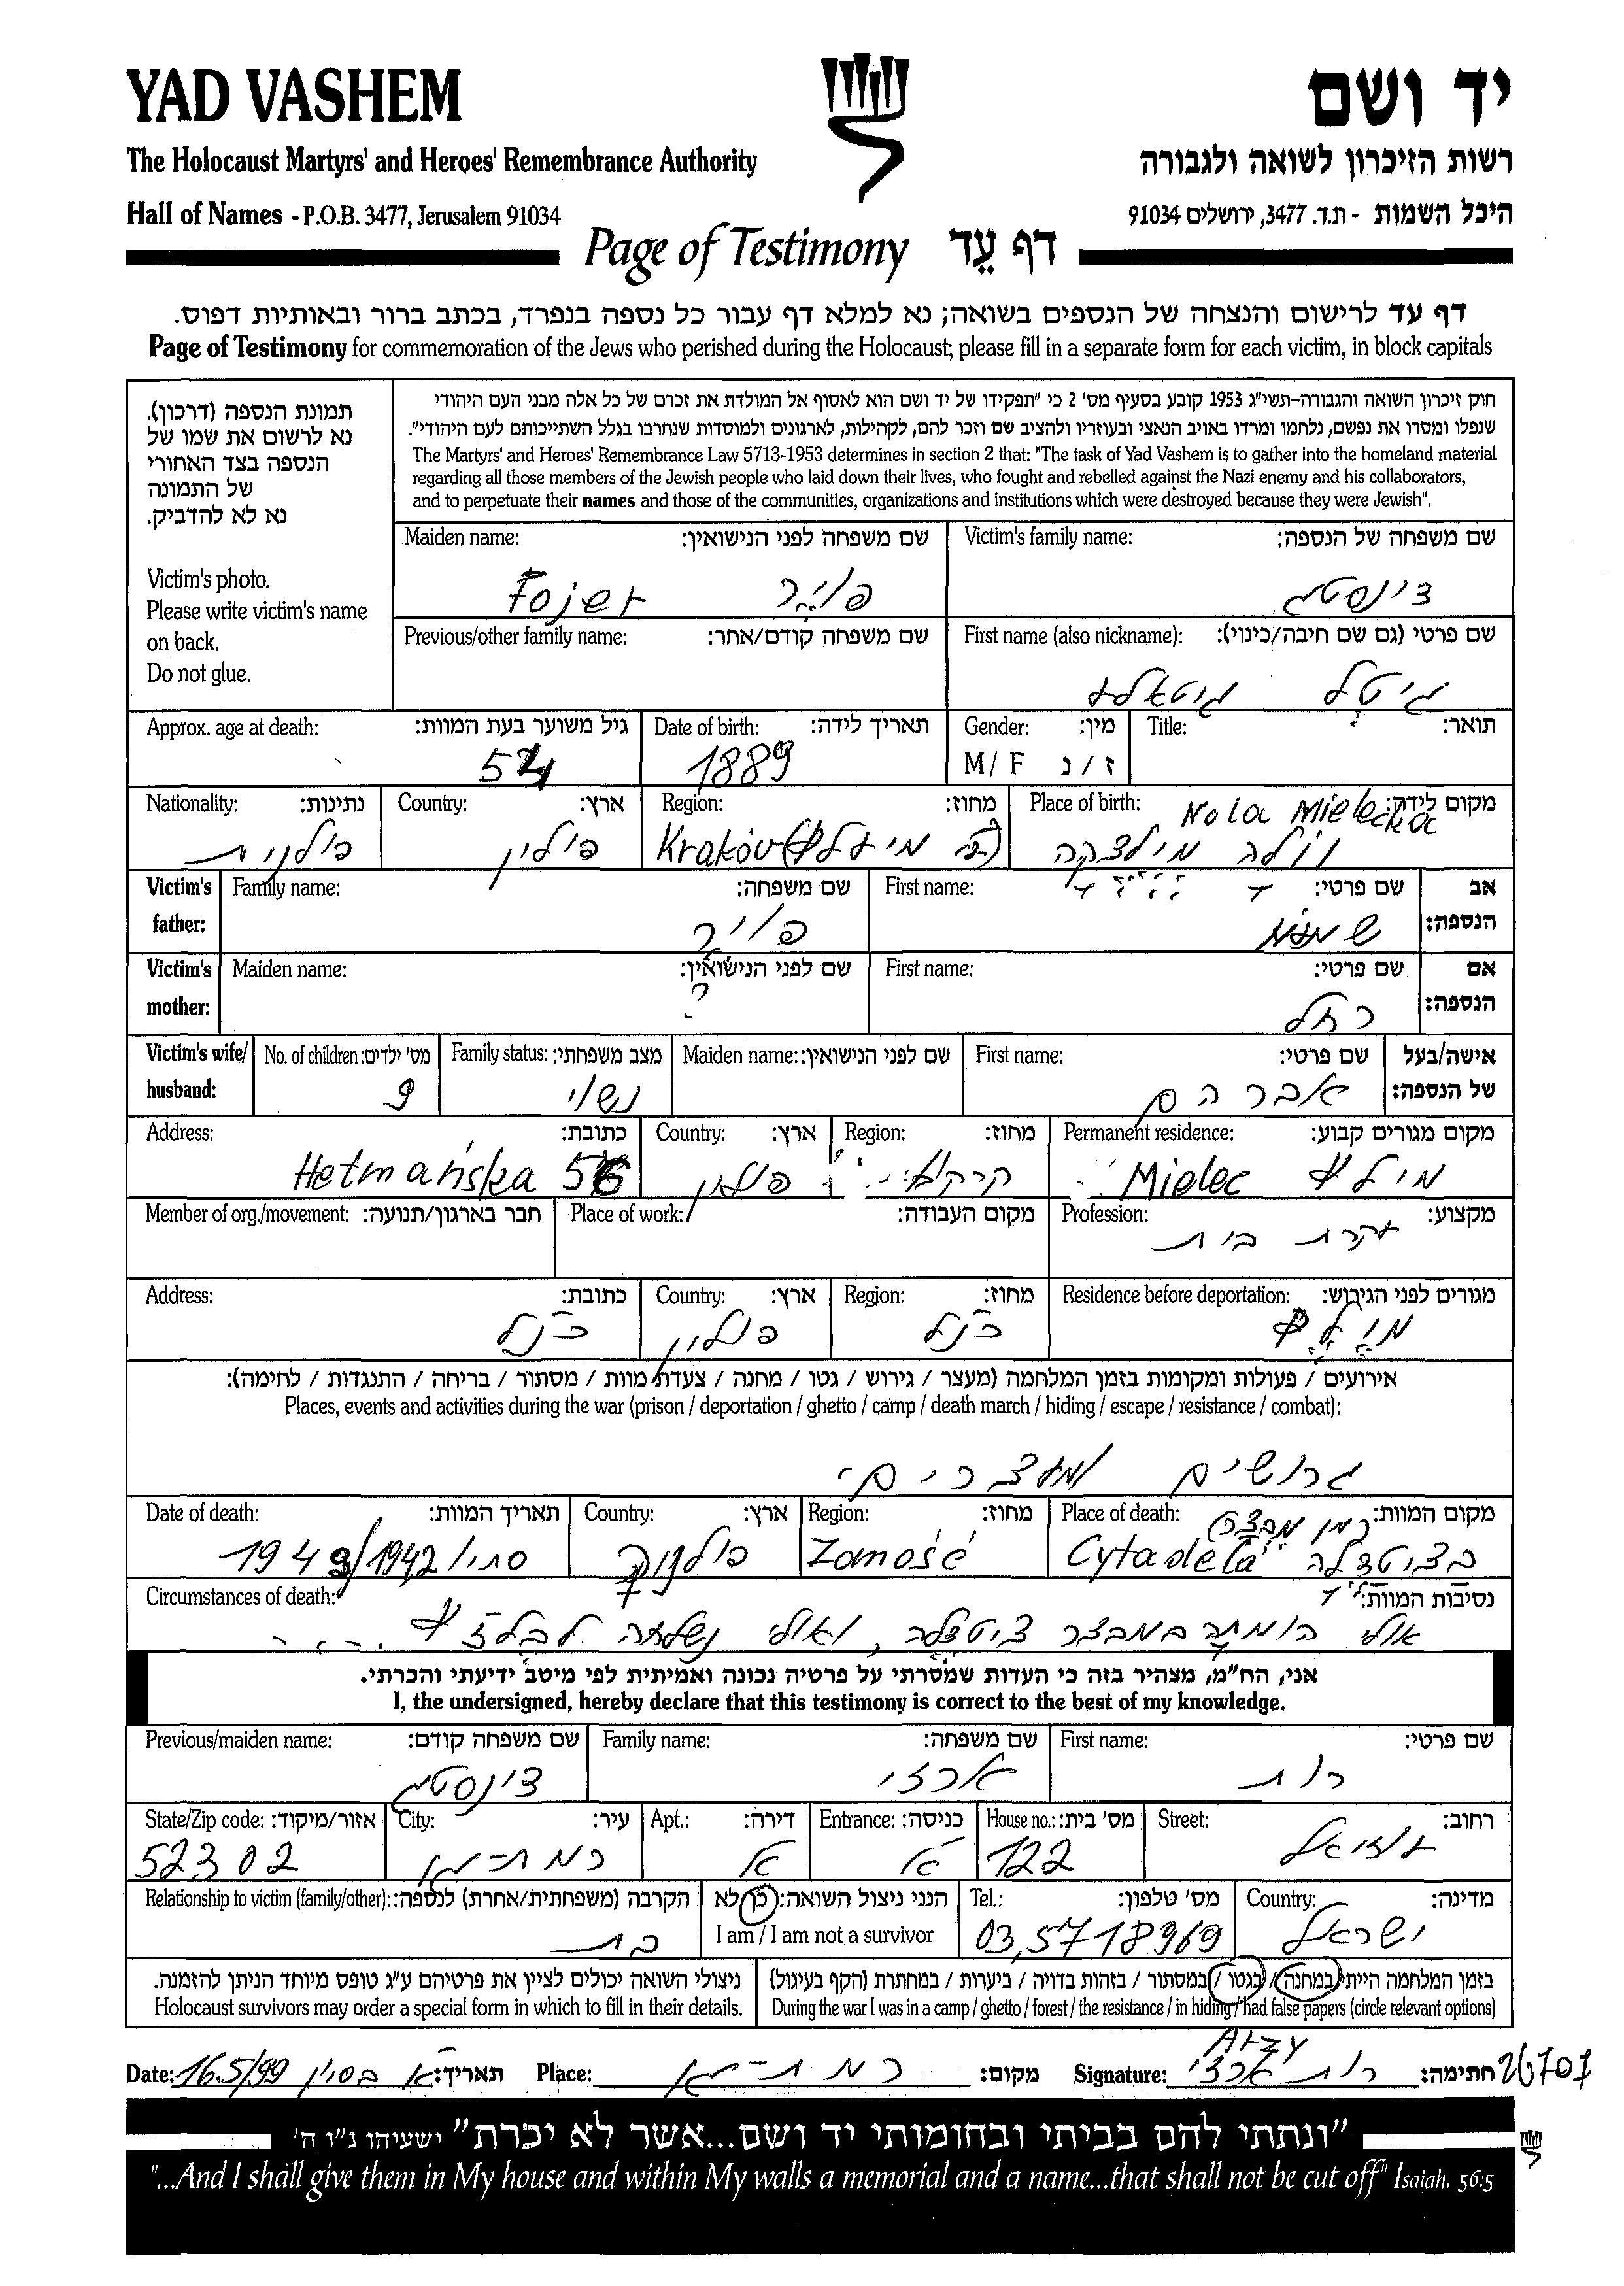 YAD VASHEM
יד ושם
The Holocaust Martyrs' and Heroes' Remembrance Authority
רשות הזיכרון לשואה ולגבורה
Hall of Names - P.O.B. 3477, Jerusalem 91034
היכל השמות - ת.ד. 3477, ירושלים 91034
Page of Testimony דף עֵד
דף עד לרישום והנצחה של הנספים בשואה; נא למלא דף עבור כל נספה בנפרד, בכתב ברור ובאותיות דפוס.
Page of Testimony for commemoration of the Jews who perished during the Holocaust; please fill in a separate form for each victim, in block capitals
תמונת הנספה (דרכון).
נא לרשום את שמו של
הנספה בצד האחורי
של התמונה
נא לא להדביק.
Victim's photo.
Please write victim's name
on back.
Do not glue.
חוק זיכרון השואה והגבורה-תשי"ג 1953 קובע בסעיף מס' 2 כי "תפקידו של יד ושם הוא לאסוף אל המולדת את זכרם של כל אלה מבני העם היהודי
שנפלו ומסרו את נפשם, נלחמו ומרדו באויב הנאצי ובעוזריו ולהציב שם וזכר להם, לקהילות, לארגונים ולמוסדות שנחרבו בגלל השתייכותם לעם היהודי".
The Martyrs' and Heroes' Remembrance Law 5713-1953 determines in section 2 that: "The task of Yad Vashem is to gather into the homeland material
regarding all those members of the Jewish people who laid down their lives, who fought and rebelled against the Nazi enemy and his collaborators,
and to perpetuate their names and those of the communities, organizations and institutions which were destroyed because they were Jewish".
Victim's family name: שם משפחה של הנספה:
Maiden name: שם משפחה לפני הנישואין:
Fojer פויר
First name (also nickname): שם פרטי (גם שם חיבה/כינוי):
גיטל
Previous/other family name: שם משפחה קודם/אחר:
Title: תואר:
Gender: מין:
M / F ז / נ
Date of birth: תאריך לידה:
1889
Approx. age at death: גיל משוער בעת המוות:
54
Place of birth: מקום לידה:
Wola Mielecka
וולה מילצקה
Region: מחוז:
Kraków
Country: ארץ:
פולין
Nationality: נתינות:
פולנית
Victim's father: אב הנספה:
First name: שם פרטי:
Family name: שם משפחה:
פויר
Victim's mother: אם הנספה:
First name: שם פרטי:
רחל
Maiden name: שם לפני הנישואין:
?
Victim's wife/ husband: אישה/בעל של הנספה:
First name: שם פרטי:
אברהם
Maiden name: שם לפני הנישואין:
Family status: מצב משפחתי:
נשוי
No. of children: מס' ילדים:
9
Permanent residence: מקום מגורים קבוע:
Mielec מילץ
Region: מחוז:
Country: ארץ:
פולין
Address: כתובת:
Hetmańska 56
Profession: מקצוע:
עקרת בית
Place of work: מקום העבודה:
Member of org./movement: חבר בארגון/תנועה:
Residence before deportation: מגורים לפני הגירוש:
מילץ
Region: מחוז:
כנ"ל
Country: ארץ:
פולין
Address: כתובת:
כנ"ל
אירועים / פעולות ומקומות בזמן המלחמה (מעצר / גירוש / גטו / מחנה / צעדת מוות / מסתור / בריחה / התנגדות / לחימה):
Places, events and activities during the war (prison / deportation / ghetto / camp / death march / hiding / escape / resistance / combat):
גרושים
Place of death: מקום המוות:
Cytadela בציטדלה
Region: מחוז:
Zamość
Country: ארץ:
Date of death: תאריך המוות:
סתיו 1942/1943
Circumstances of death: נסיבות המוות:
אולי הומתה במבצר ציטדלה, ואולי נשלחה לבלזץ
אני, הח"מ, מצהיר בזה כי העדות שמסרתי על פרטיה נכונה ואמיתית לפי מיטב ידיעתי והכרתי.
I, the undersigned, hereby declare that this testimony is correct to the best of my knowledge.
First name: שם פרטי:
רות
Family name: שם משפחה:
ארזי
Previous/maiden name: שם משפחה קודם:
Street: רחוב:
עוזיאל
House no.: מס' בית:
122
Entrance: כניסה:
א
Apt.: דירה:
א
City: עיר:
רמת-גן
State/Zip code: אזור/מיקוד:
52302
Country: מדינה:
ישראל
Tel.: מס' טלפון:
03,5718969
הנני ניצול השואה: כן לא
I am / I am not a survivor
Relationship to victim (family/other): הקרבה (משפחתית/אחרת) לנספה:
בת
בזמן המלחמה הייתי במחנה / בגטו / במסתור / בזהות בדויה / ביערות / במחתרת (הקף בעיגול)
During the war I was in a camp / ghetto / forest / the resistance / in hiding / had false papers (circle relevant options)
ניצולי השואה יכולים לציין את פרטיהם ע"ג טופס מיוחד הניתן להזמנה.
Holocaust survivors may order a special form in which to fill in their details.
Arzy
Date: 16.5/99 א בסיון תאריך: Place: רמת-גן מקום: Signature: רות ארזי חתימה: 26707
"ונתתי להם בביתי ובחומותי יד ושם...אשר לא יכרת" ישעיהו נ"ו ה'
"...And I shall give them in My house and within My walls a memorial and a name...that shall not be cut off" Isaiah, 56:5